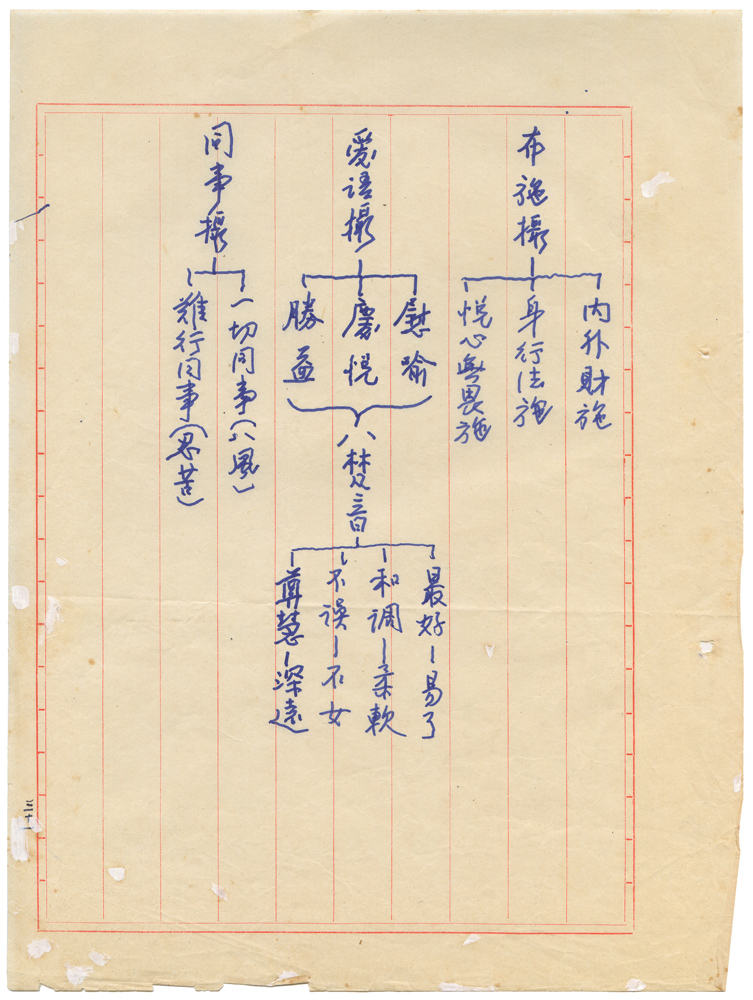 布施攝
內外財施
身行法施
悅心無畏施
愛語攝
慰喻
慶悅
勝益
八梵音
最好—易了
和調—柔軟
不誤—不女
尊慧—深遠
同事攝
一切同事(八風)
難行同事(忍苦)